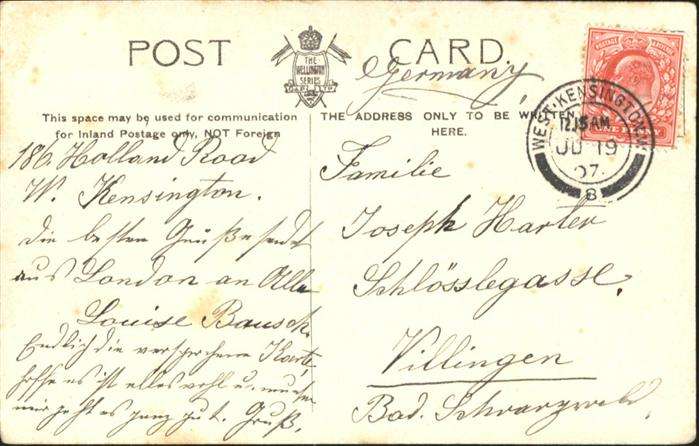 POST CARD
THE
WELLINGTON
SERIES
This space may be used for communication
for Inland Postage only, NOT Foreign
THE ADDRESS ONLY TO BE WRITTEN
HERE.
Germany,
WEST KENSINGTON. W.
12.15 AM
JU 19
07
8
186 Holland Road
W. Kensington.
Die besten Grüße sendet
aus London an Alle
Louise Bausch.
Endlich die versprochene Karte,
hoffe es ist alles wohl u. munter
mir geht es ganz gut. Gruß.
Familie
Joseph Harter
Schlösslegasse.
Villingen
Bad. Schwarzwald.